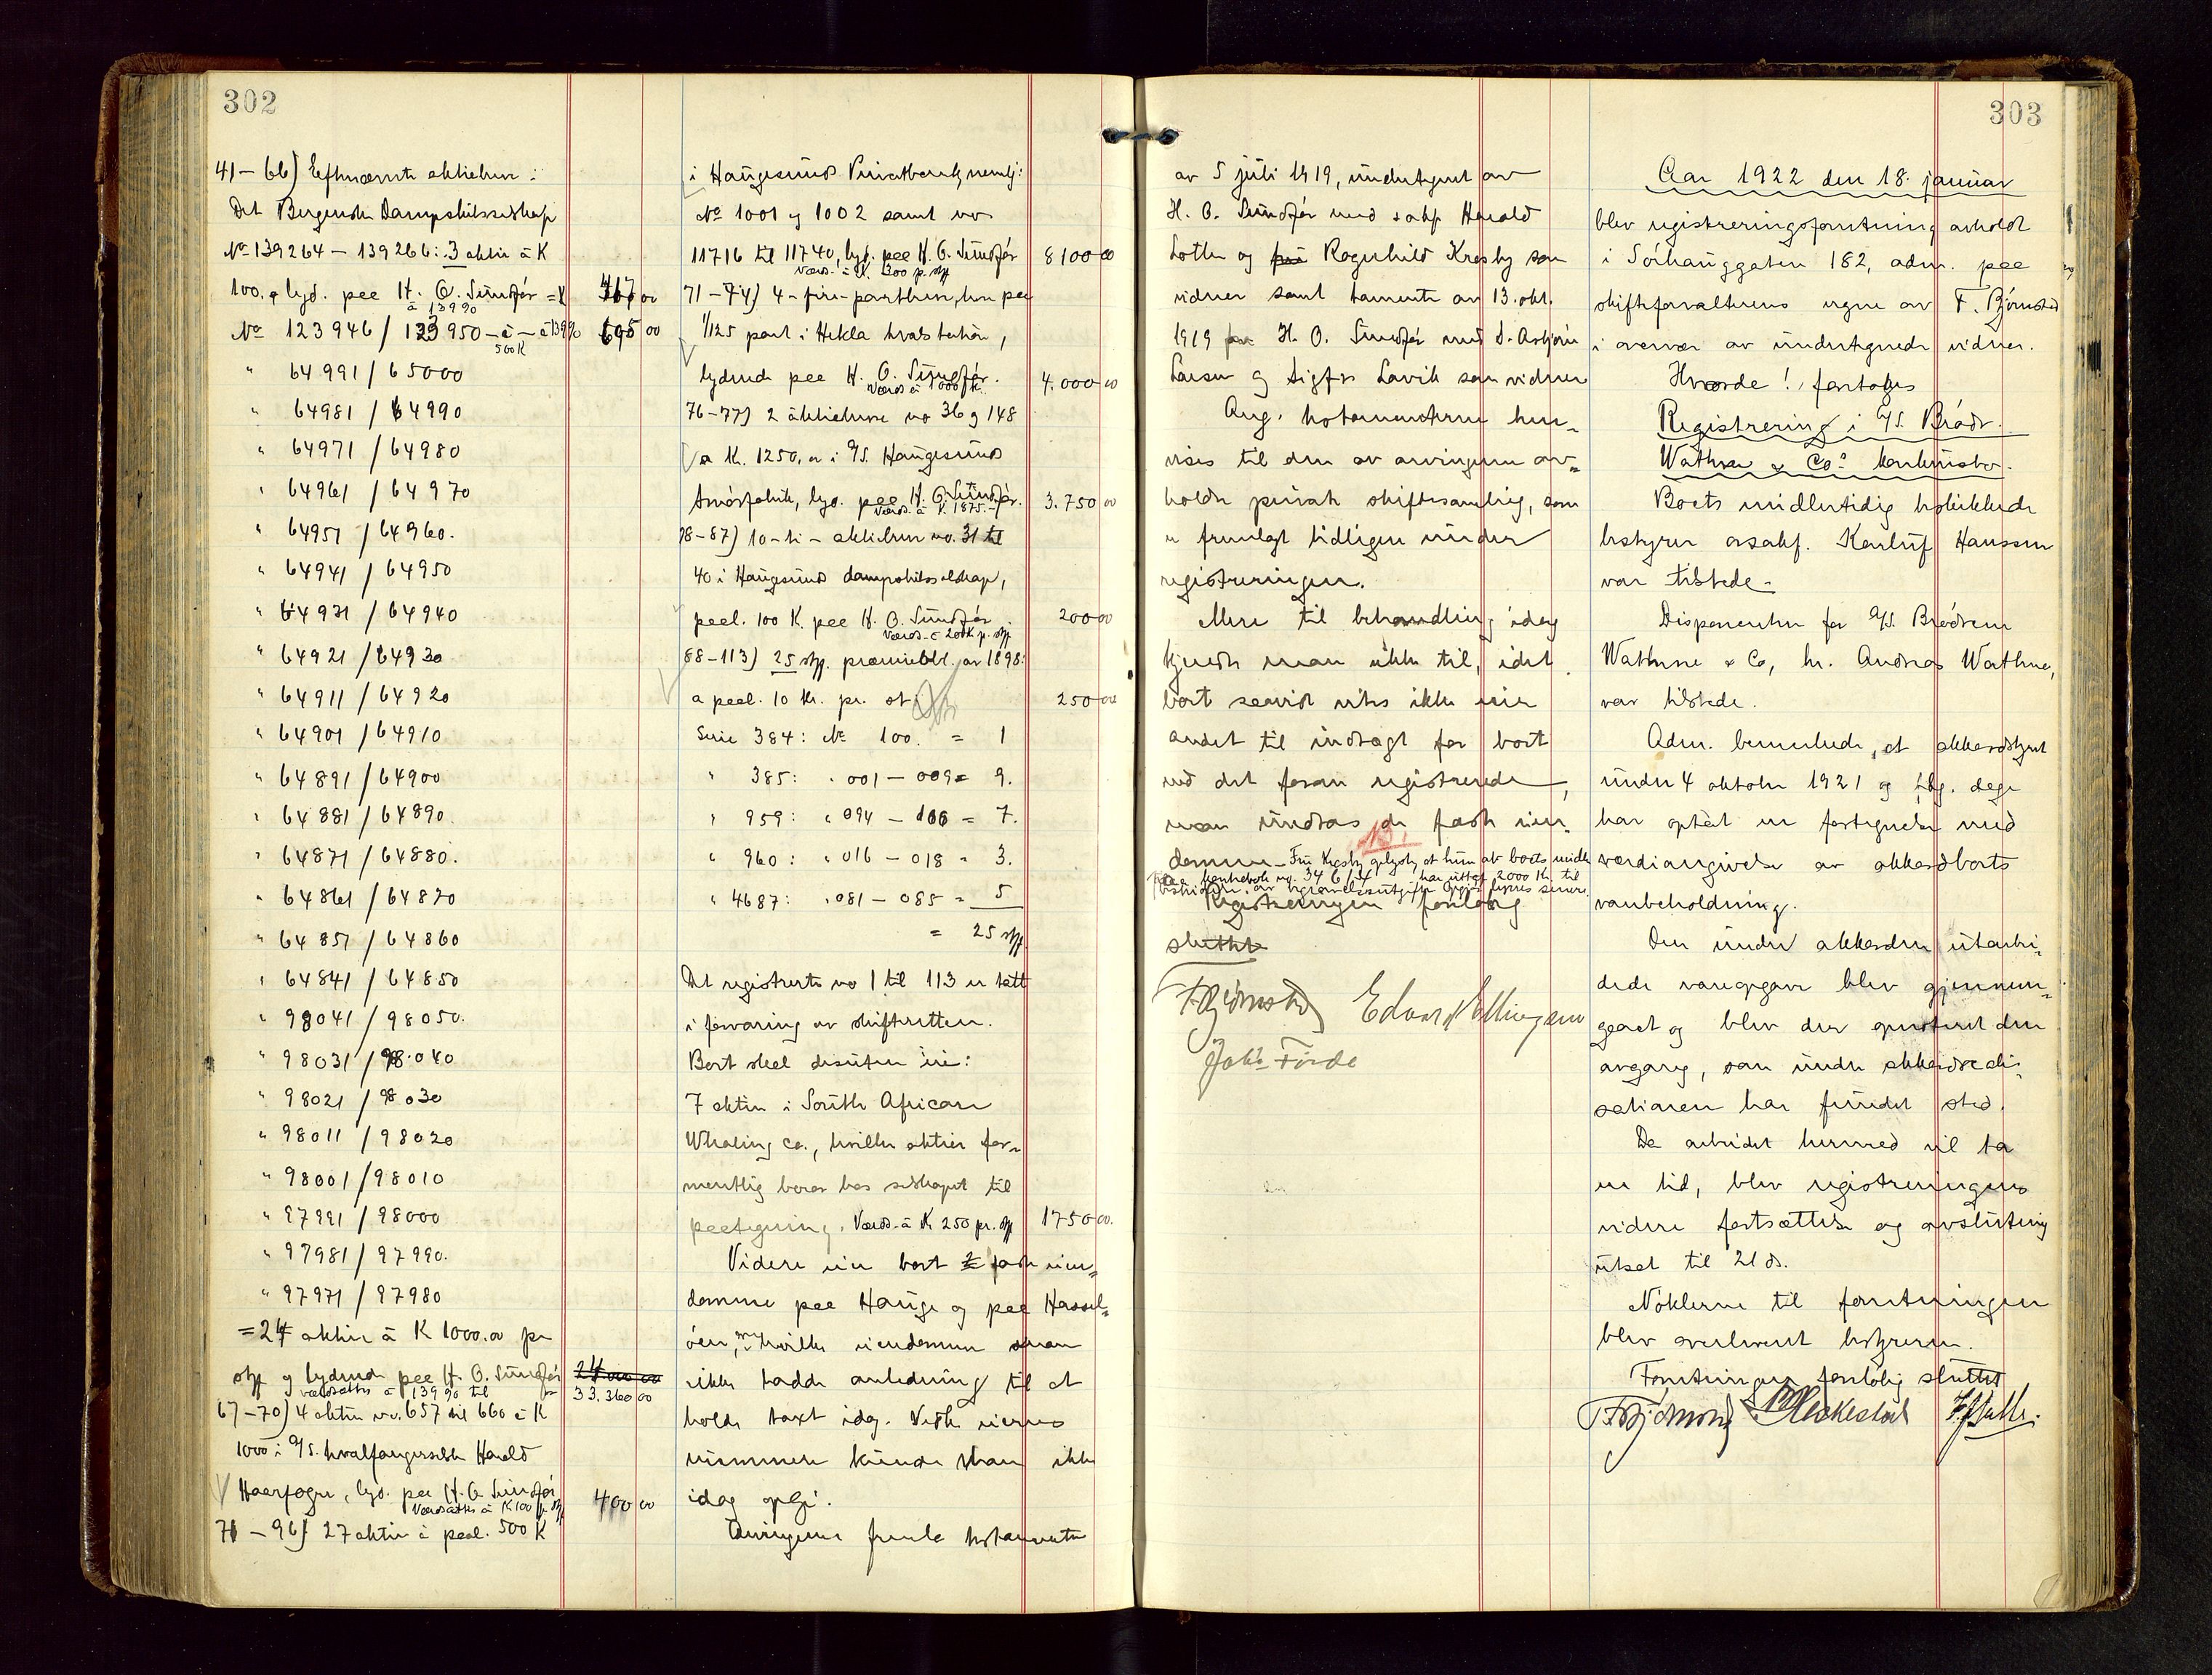 302
41 – 66) Eftnævnte aktiebrev:
Det Bergenske Dampskibsselskap
No 139264 – 139266: 3 aktier à K
100. lyd. paa H. O. Sundfør = K 417 00
à 139 90
No 123946 / 123950 – à – à 139 90 695 00
500 K
" 64991 / 65000
" 64981 / 64990
" 64971 / 64980
" 64961 / 64970
" 64951 / 64960.
" 64941 / 64950
" 64931 / 64940
" 64921 / 64930
" 64911 / 64920
" 64901 / 64910
" 64891 / 64900
" 64881 / 64890.
" 64871 / 64880.
" 64861 / 64870
" 64851 / 64860
" 64841 / 64850
" 98041 / 98050.
" 98031 / 98040
" 98021 / 98030
" 98011 / 98020
" 98001 / 98010
" 97991 / 98000
" 97981 / 97990.
" 97971 / 97980
= 24 aktier à K 1000.00 pr
stk og lydende paa H. O. Sundfør 24 000 00
værdsættes à 139 90 til 33.360 00
67 – 70) 4 aktier no. 657 til 660 à K
1000 i A/S. hvalfangerselsk Harald
Haarfagre, lyd. paa H. O. Sundfør
Værdsættes à K 100 pr stk 400 00
71 – 96) 27 aktier à paal. 500 K
i Haugesunds Privatbank, nemlig:
No 1001 og 1002 samt no
11716 til 11740, lyd. paa H. O. Sundfør 8100 00
Værds. à K. 300 p. stk
71 – 74) 4 – fire – partbrev, hver paa
1/125 part i Hekla hvalstation,
lydende paa H. O. Sundfør. 4.000 00
Værds à 1000 K.
76 – 77) 2 aktiebreve no 36 og 148
a K. 1250.00 i A/S. Haugesunds
Smørfabrik, lyd. paa H. O. Sundfør. 3.750 00
Værds. à K. 1875.-
78 – 87) 10 – ti – aktiebrev no. 31 til
40 i Haugesunds dampskibsselskap,
paal. 100 K. paa H. O. Sundfør 200 00
Værds. à 200K p. stk
88 – 113) 25 stk. præmieobl. av 1898:
a paal. 10 Kr. pr. st 250 00
Serie 384: No 100. = 1
" 385: " 001 – 009 = 9.
" 959: " 094 – 100 = 7.
" 960: " 016 – 018 = 3.
" 4687: " 081 – 085 = 5
= 25 stk
Det registrerte no 1 til 113 er tatt
i forvaring av skifteretten.
Boet skal desuten eie:
7 aktier i South African
Whaling Co., hvilke aktier for-
mentlig beror hos selskapet til
paategning. Værds. à K 250 pr. stk 1750 00.
Videre eier boet 2 faste eien-
domme paa Hauge og paa Hassel-
øen, hvilke eiendomme man
ikke hadde anledning til at
holde takst idag. Disse eieres
nummere kunde man ikke
idag opgi.
Arvingene fremla testamente
av 5 juli 1919, undertegnet av
H. O. Sundfør med sakf. Harald
Lothe og frk Ragnhild Kresby som
vidner samt testamente av 13. okt.
1919 fra H. O. Sundfør med S. Asbjørn
Larsen og Sigfr. Lavik som vidner
Ang. testamenterne hen-
vises til den av arvingerne av-
holdte private skiftesamling, som
er fremlagt tidligere under
registreringen.
Mere til behandling idag
kjendte man ikke til, idet
boet saavidt vites ikke eier
andet til indtægt for boet
end det foran registrerede,
man undtas de faste eien-
domme – Fru Kresby oplyste at hun av boets midler
paa bankbok no. 34614 har uttat 2000 Kr. til
bestridelse av begravelsesutgifter Opgjør senere
Registreringen foreløbig
sluttet
F. Bjørnstad Edvard Ellingsen
Jakob Førde
303
Aar 1922 den 18. januar
blev registreringsforretning avholdt
i Sørhauggaten 182, adm. paa
skifteforvalterens vegne av F. Bjørnstad
i overvær av undertegnede vidner.
Hvorde! fortoges
Registrering i A/S. Brødr.
Wathne & Co.s konkursbo.
Boets midlertidig beskikkede
bestyrer o.r.sakf. Karluf Hanssen
var tilstede.
Disponenten for A/S. Brødrene
Wathne & Co, hr. Andreas Wathne,
var tilstede.
Adm. bemerkede, at akkordstyret
under 4 oktober 1921 og følg. dage
har optat en fortegnelse med
værdiangivelse av akkordboets
varebeholdning.
Den under akkorden utarbei-
dede vareopgave blev gjennem-
gaat og blev der opnotert den
avgang, som under akkordreali-
sationen har fundet sted.
Da arbeidet hermed vil ta
en tid, blev registreringens
videre fortsættelse og avslutning
utsat til 21 ds.
Nøklerne til forretningen
blev overlevert bestyreren.
Forretningen foreløbig sluttet
F. Bjørnstad